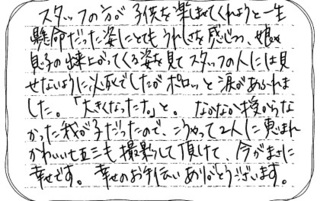 スタッフの方が子供を楽しませてくれようと一生
懸命だった姿にとてもうれしさを感じつつ、娘と
息子の出来上がってくる姿を見てスタッフの人には見
せないように必死でしたがポロッと涙があふれま
した。「大きくなったナ」と。なかなか授からな
かった我が子だったので、こうやって2人に恵まれ
かわいい七五三も撮影して頂けて、今がまさに
幸せです。幸せのお手伝いありがとうございます。